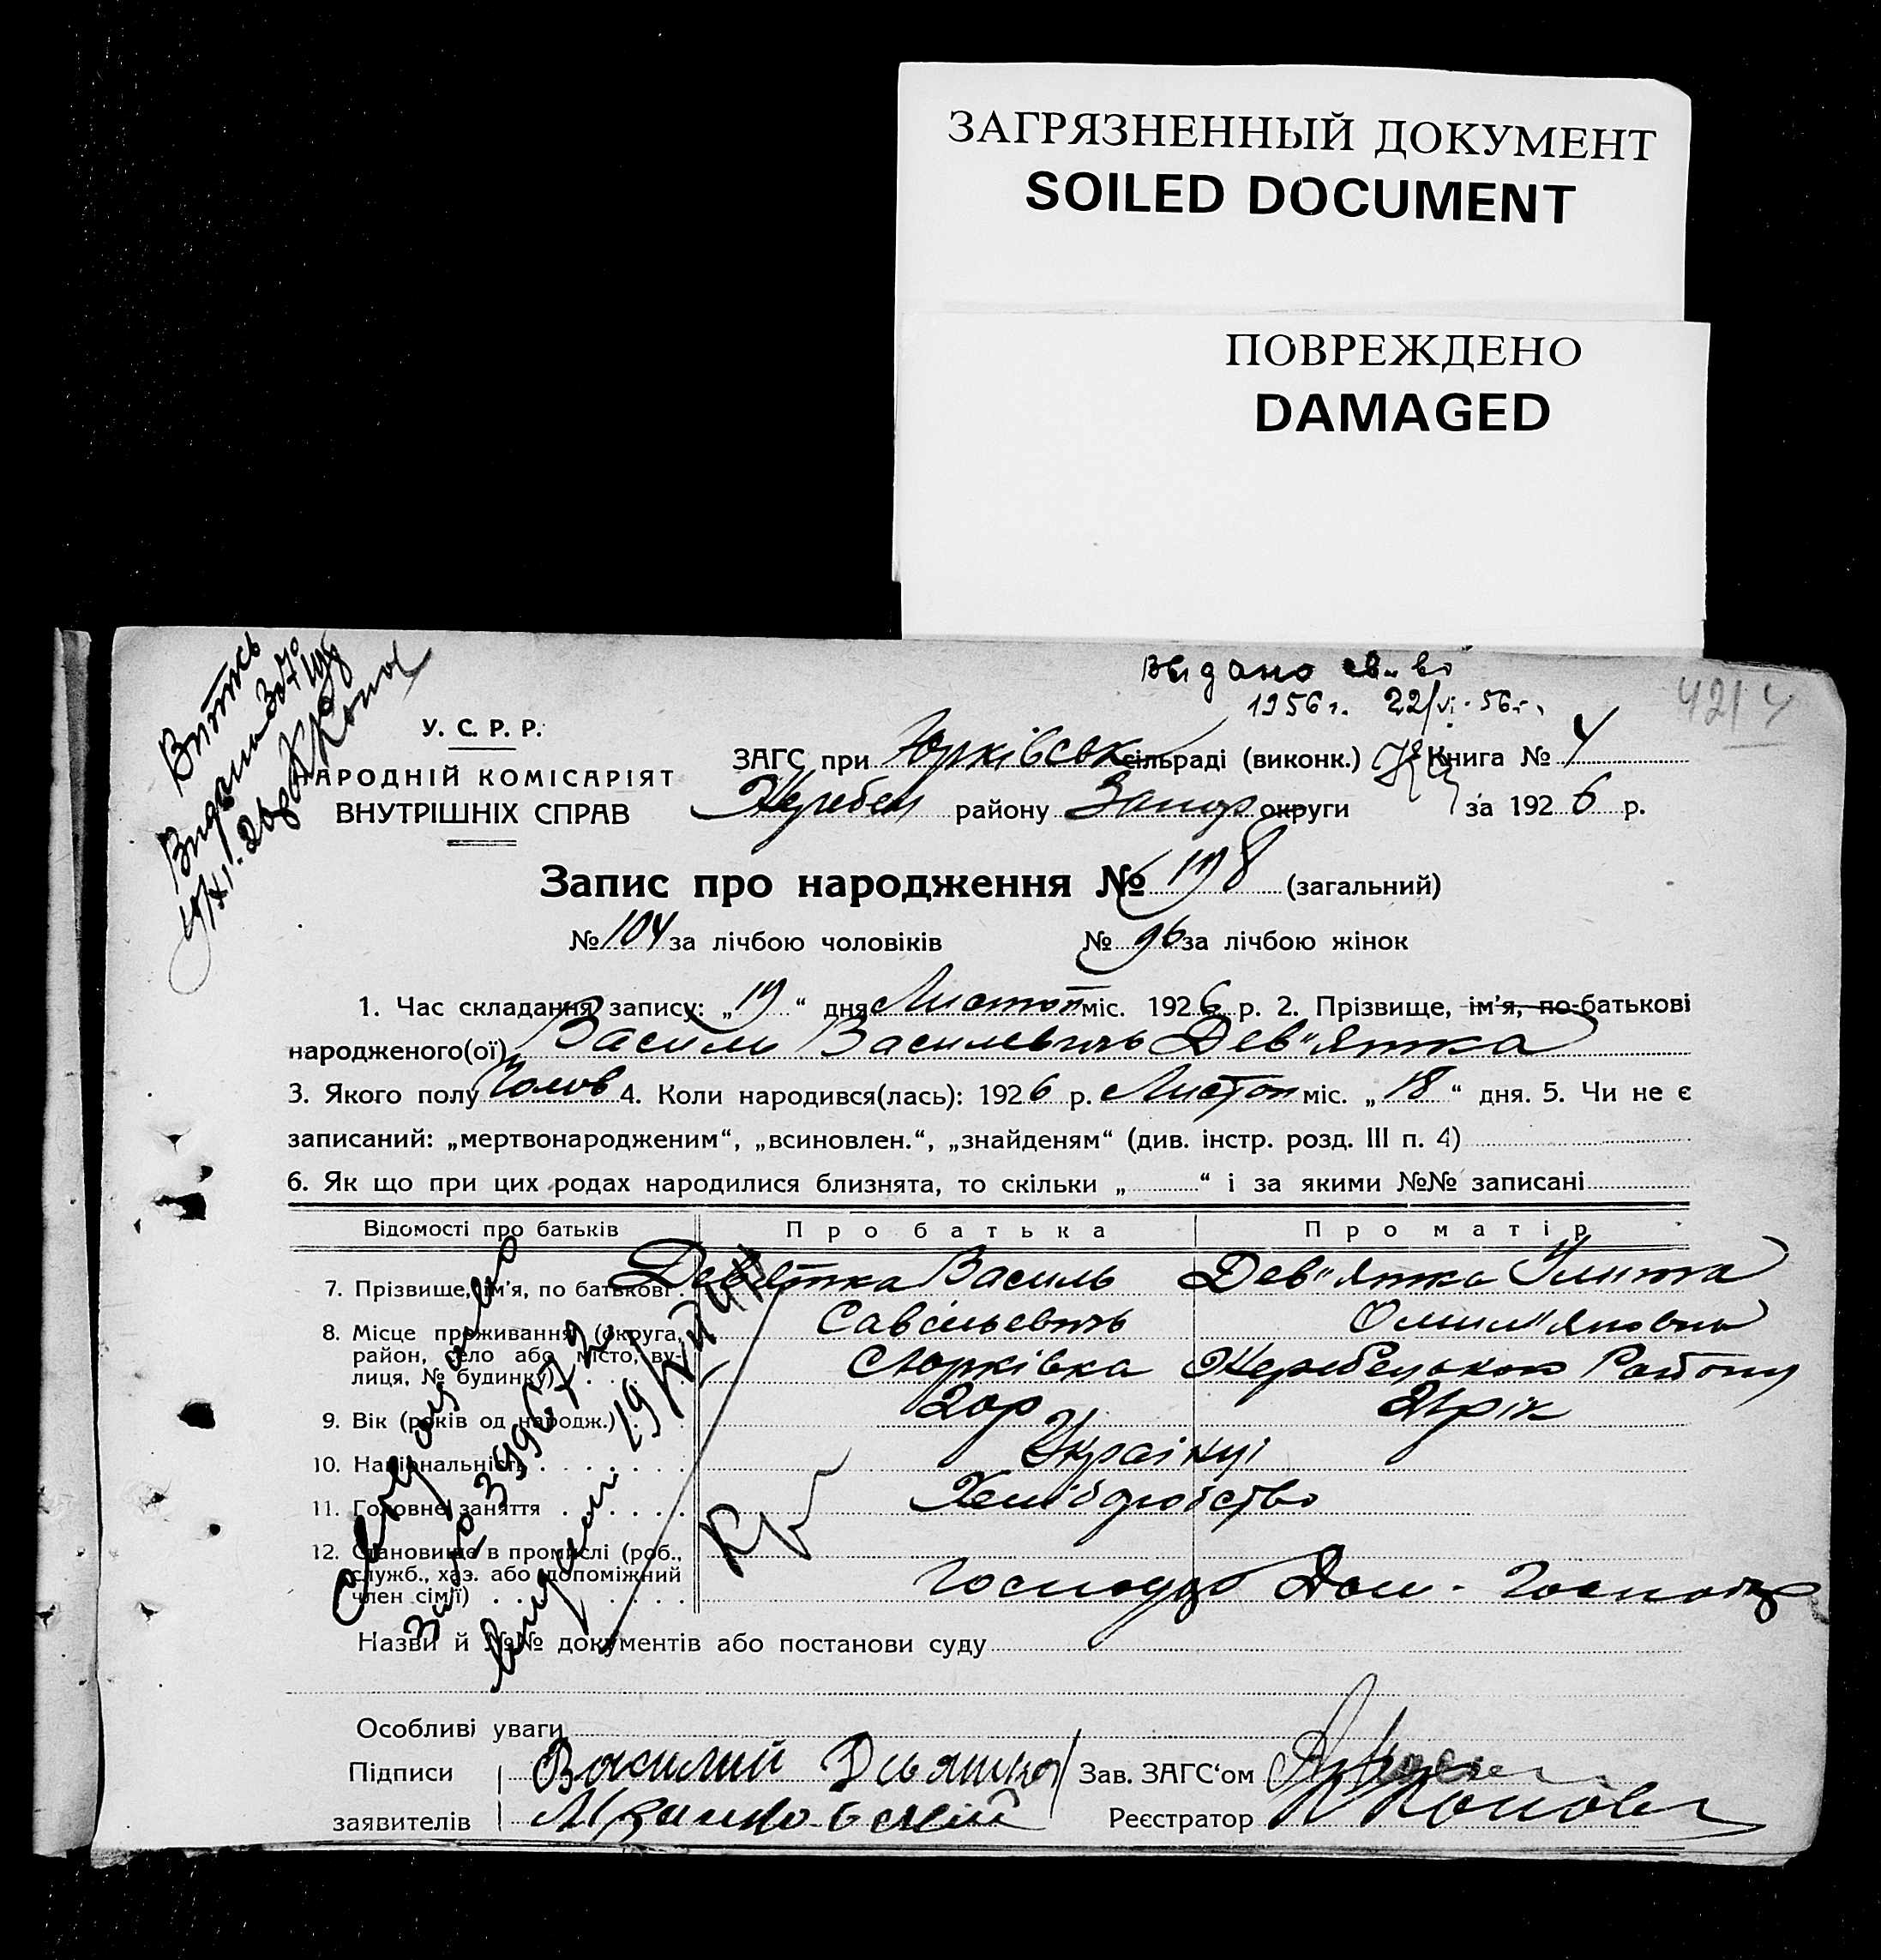 ЗАГРЯЗНЕННЫЙ ДОКУМЕНТ
SOILED DOCUMENT
ПОВРЕЖДЕНО
DAMAGED
Выдано св-во
1956 г. 22/VI-56 г.
42/4
У. С. Р. Р.
НАРОДНІЙ КОМІСАРІЯТ
ВНУТРІШНІХ СПРАВ
ЗАГС при Юрківськ сільраді (виконк.) Книга № 4
Жеребец району Запор округи за 1926 р.
Запис про народження № 198 (загальний)
№ 104 за лічбою чоловіків № 96 за лічбою жінок
1. Час складання запису: „19“ дня Листоп міс. 1926 р. 2. Прізвище, ім'я, по-батькові
народженого(ої) Василь Василевичь Дев"ятка
3. Якого полу Чолов 4. Коли народився(лась): 1926 р. Листоп міс. „18“ дня. 5. Чи не є
записаний: „мертвонародженим“, „всиновлен.“, „знайденям“ (див. інстр. розд. III п. 4)
6. Як що при цих родах народилися близнята, то скільки „ “ і за якими №№ записані
Відомості про батьків Про батька Про матір
7. Прізвище, ім'я, по батькові Дев"ятка Василь Дев"ятка Улита
Савельевичь Омил"яновна
8. Місце проживання (округа,
район, село або місто, ву-
лиця, № будинку) С Юрківка Жеребецького Району
9. Вік (років од народж.) 20р 21 рік
10. Національність Українці
11. Головне заняття Хліборобство
12. Становище в промислі (роб.,
служб., хаз. або допоміжний
член сімії) Господар Дом. Господар
Назви й №№ документів або постанови суду
Особливі уваги
Підписи Василий Девятка Зав. ЗАГС'ом
заявителів Реєстратор